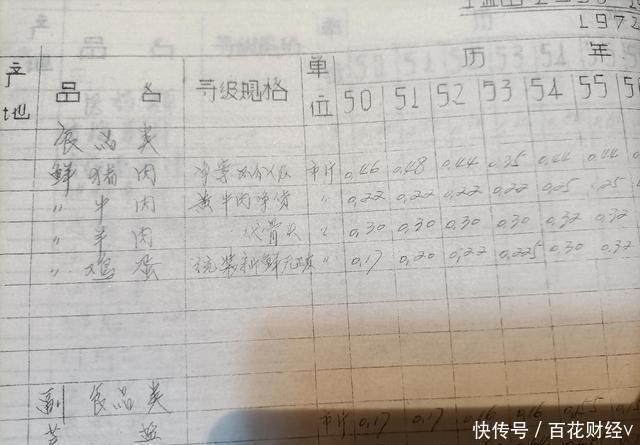 1972
历 年
产地 品名 等级规格 单位 50 51 52 53 54 55
食品类
鲜猪肉 市斤 0.46 0.48 0.44 0.35 0.44 0.44
〃 牛肉 黄牛肉净货 〃 0.22 0.22 0.22 0.22 0.25 0.25
〃 羊肉 〃 0.30 0.30 0.30 0.30 0.32 0.32
〃 鸡蛋 统装新鲜无破 〃 0.17 0.20 0.22 0.225 0.30 0.32
副食品类
盐 市斤 0.17 0.17 0.16 0.16
快传号/百花财经v